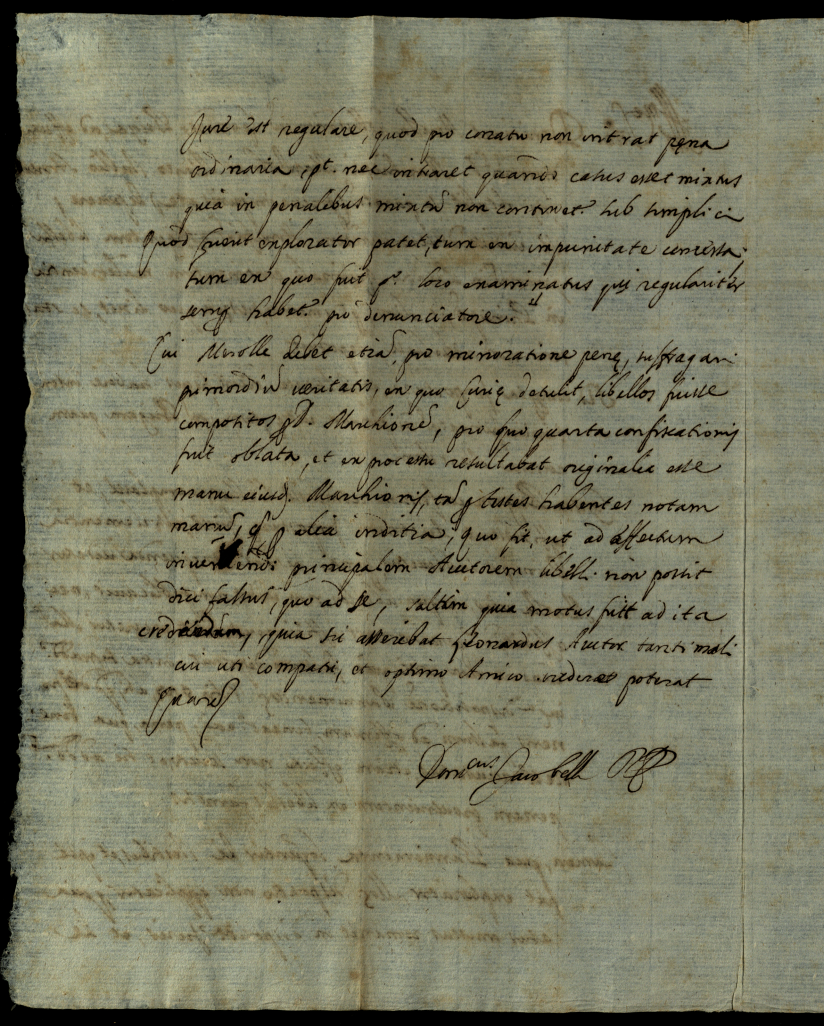 Jure est regulare, quod pro conatu non intrat pęna
ordinaria, pt. nec intraret quando casus esset mixtus
quia in penalibus mixtũ non continet.r sub simplici
Quod fuerit explorator patet, tum ex impunitate concessa,
tum ex quo fuit po. loco examinatus qui regulariter
semp habet.r pro denunciatore.
Cui Merolle debet etiã pro minoratione penę, suffragari
primordiũ veritatis, ex quo Curię detulit, libellos fuisse
compositos pd. Marchionẽ, pro quo quarta confiscationis
fuit oblata, et ex processu resultabat originalia esse
manu eiusd. Marchionis, tã p testes habentes notam
manũ, q p alia inditia; quo fit, ut ad effectum
inveniendi principalem Auctorem libelli non possit
dici falsus, quo ad se, saltim quia motus fuit ad ita
credendum, quia sic asserebat Leonardus Auctor tanti mali
cui uti compatri, et optimo Amico credere poterat
Quare
Domcus Jacobelli